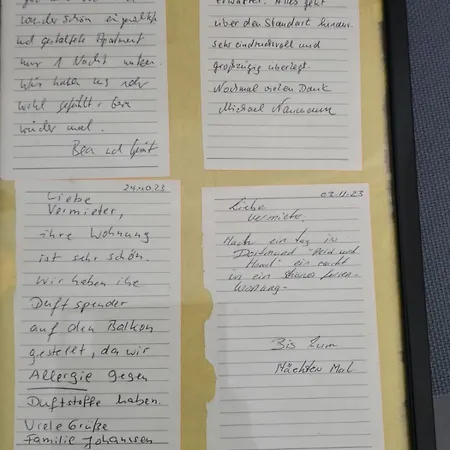 wunder schön
und gestaltete Apartment
nur 1 Nacht nutzen.
Wir haben uns sehr
wohl gefühlt
wieder mal.
Bea und
erwartet. Alles geht
über den Standart hinaus.
sehr eindrucksvoll und
großzügig überlegt.
Nochmal vielen Dank
Michael Naumann
24.10.23
Liebe
Vermieter,
ihre Wohnung
ist sehr schön.
Wir haben ihe
Duftspender
auf den Balkon
gestellt, da wir
Allergie gegen
Duftstoffe haben.
Viele Grüße
Familie Johannsen
03.11.23
Liebe
Vermieter,
Nach ein tag in
Dortmund
ein nacht
in ein
Bis zum
Nächten Mal